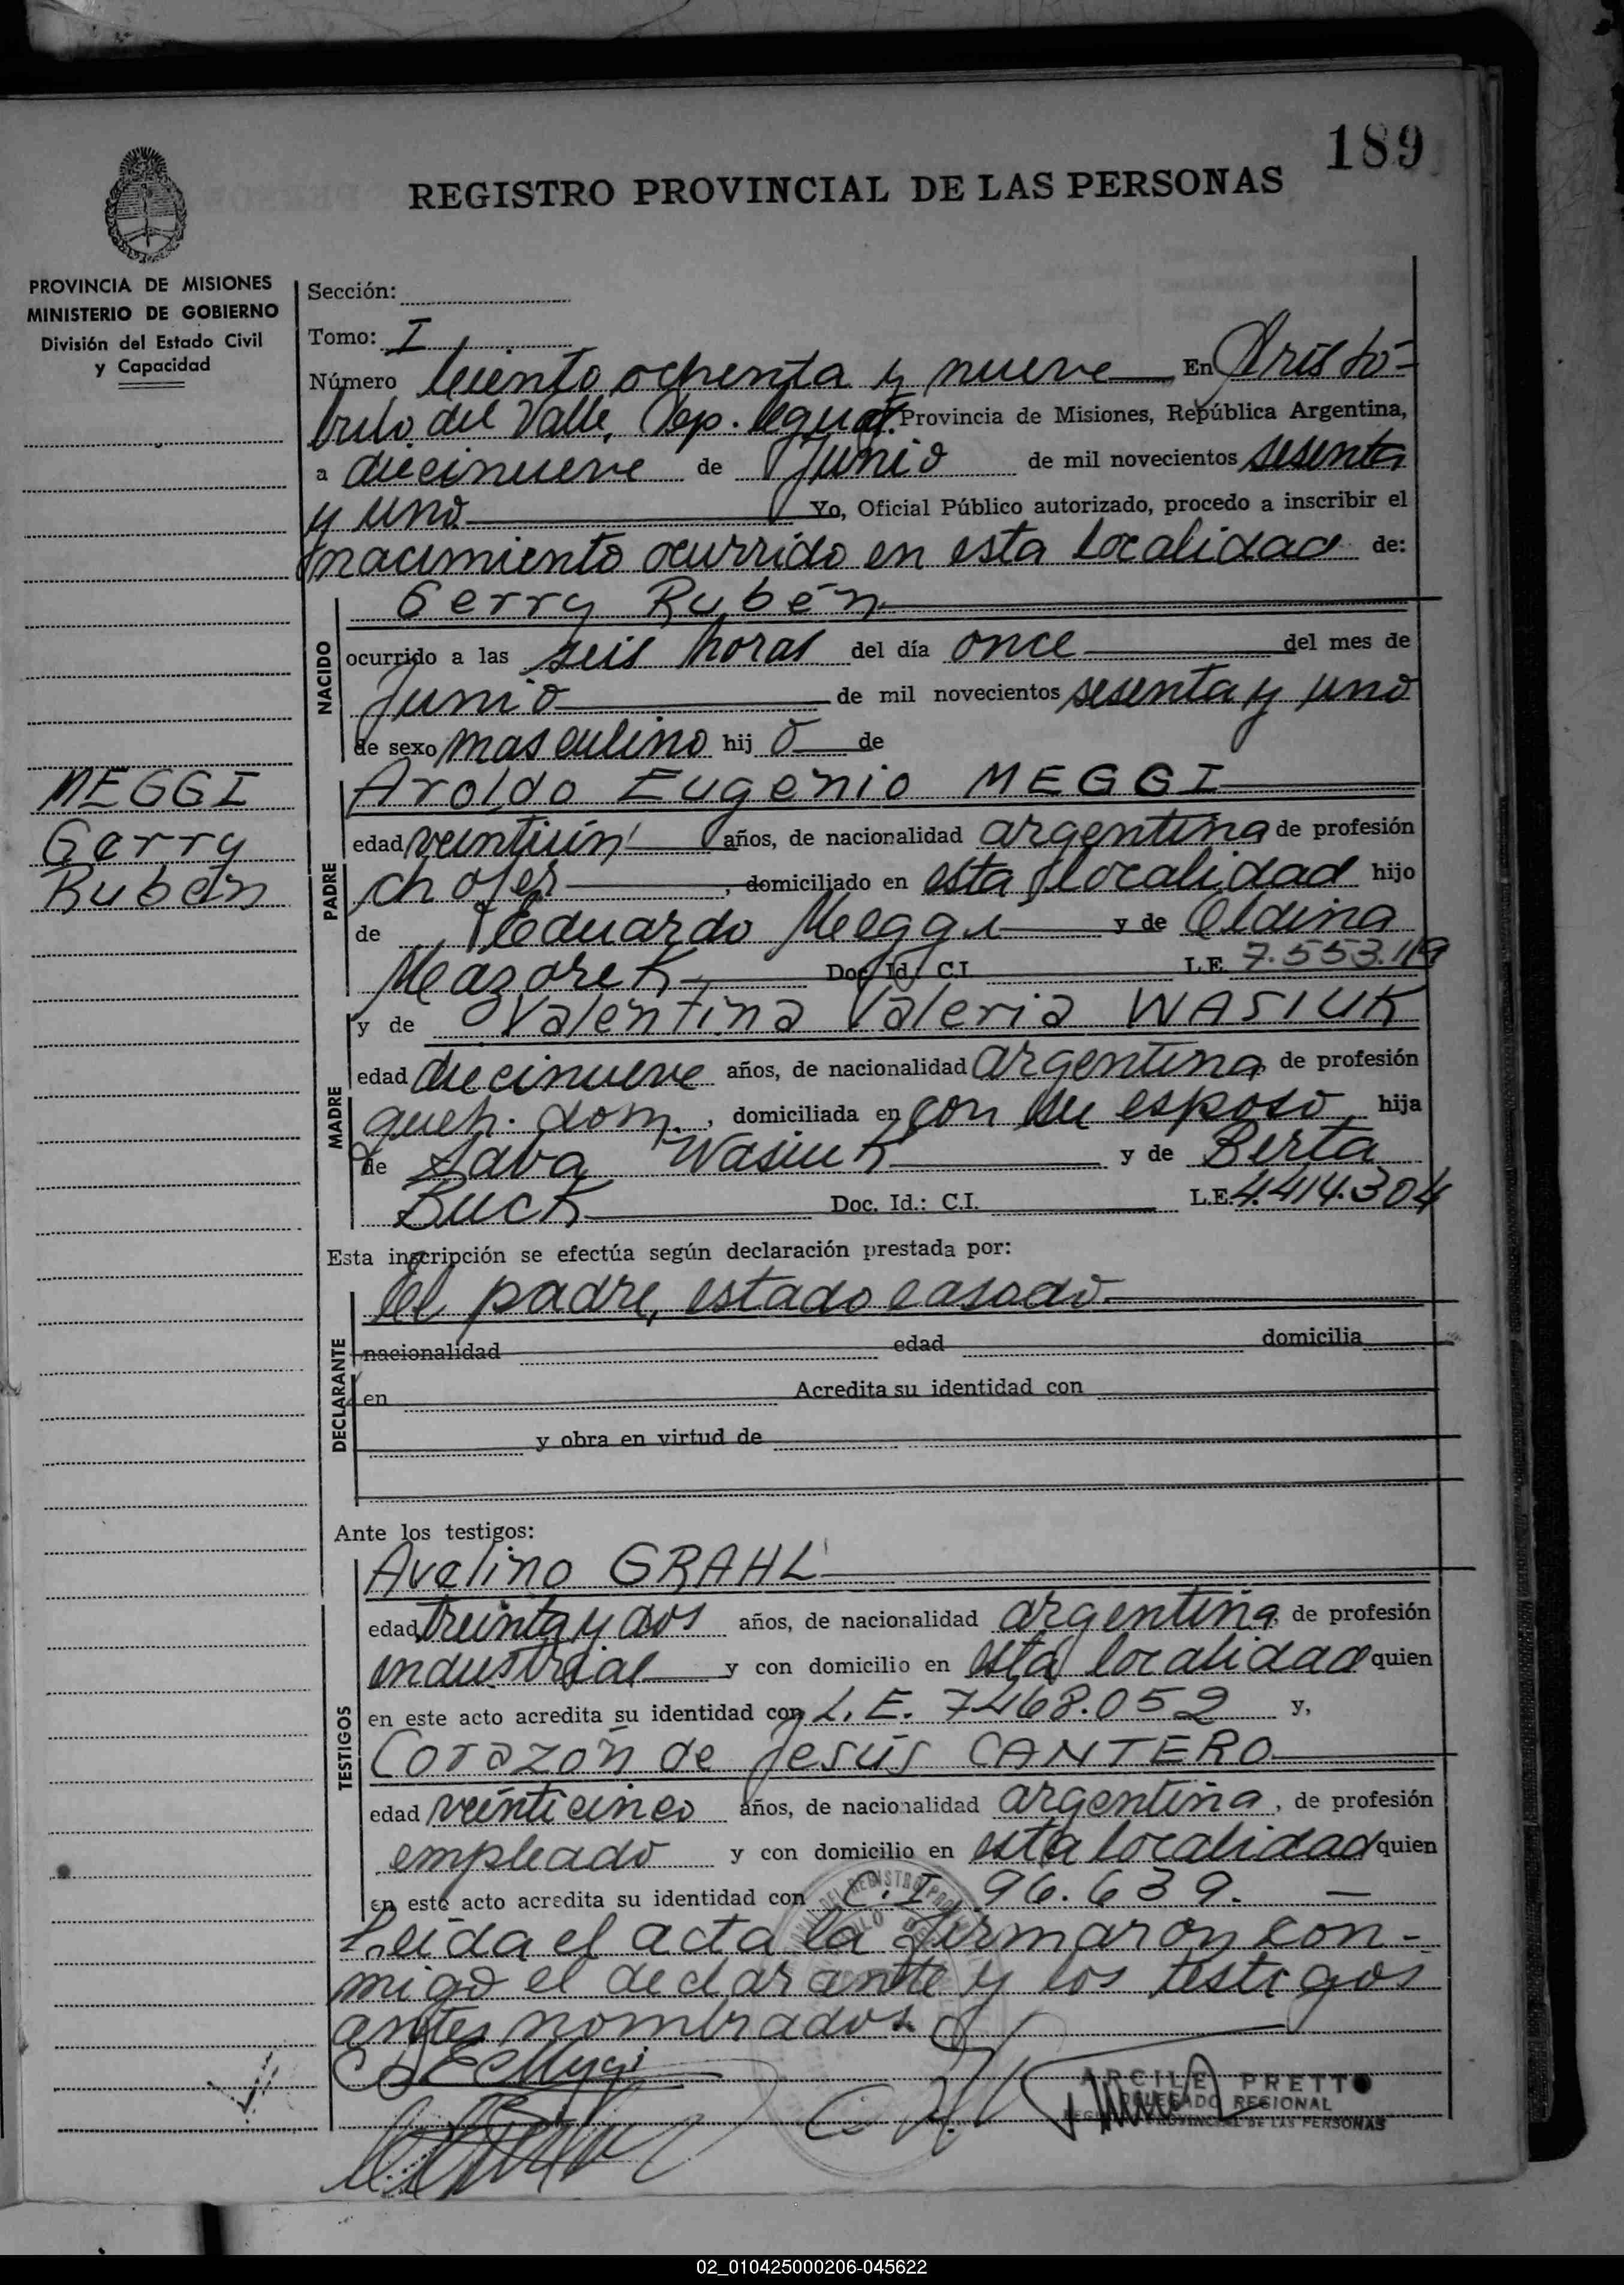 189
REGISTRO PROVINCIAL DE LAS PERSONAS
PROVINCIA DE MISIONES
MINISTERIO DE GOBIERNO
División del Estado Civil
y Capacidad
Sección:
Tomo: I
Número Ciento ochenta y nueve En Aristó-
bulo del Valle, Dep. Cgüas. Provincia de Misiones, República Argentina,
a diecinueve de Junio de mil novecientos sesenta
y uno Yo, Oficial Público autorizado, procedo a inscribir el
nacimiento ocurrido en esta localidad de:
NACIDO
Gerry Rubén
ocurrido a las seis horas del día once del mes de
Junio de mil novecientos sesenta y uno
de sexo masculino hij o de
MEGGI
Gerry
Rubén
PADRE
Aroldo Eugenio MEGGI
edad veintiún años, de nacionalidad argentina de profesión
chofer, domiciliado en esta localidad hijo
de Eduardo Meggi y de Oldina
Meazorek Doc. Id.: C.I. L.E. 7.553.119
MADRE
y de Valentina Valeria WASIUK
edad diecinueve años, de nacionalidad argentina, de profesión
queh. dom., domiciliada en con su esposo, hija
de Sava Wasiuk y de Berta
Buck Doc. Id.: C.I. L.E. 4.414.304
Esta inscripción se efectúa según declaración prestada por:
DECLARANTE
El padre, estado casado
nacionalidad edad domicilia
en Acredita su identidad con
y obra en virtud de
Ante los testigos:
TESTIGOS
Avelino GRAHL
edad treinta y dos años, de nacionalidad argentina, de profesión
industrial y con domicilio en esta localidad quien
en este acto acredita su identidad con L.E. 7468.052 y,
Corazón de Jesús CANTERO
edad veinticinco años, de nacionalidad argentina, de profesión
empleado y con domicilio en esta localidad quien
en este acto acredita su identidad con C.I. 96.639. —
Leída el acta la firmaron con-
migo el declarante y los testigos
antes nombrados.
ARCILE PRETTO
DELEGADO REGIONAL
REGISTRO PROVINCIAL DE LAS PERSONAS
02_010425000206-045622